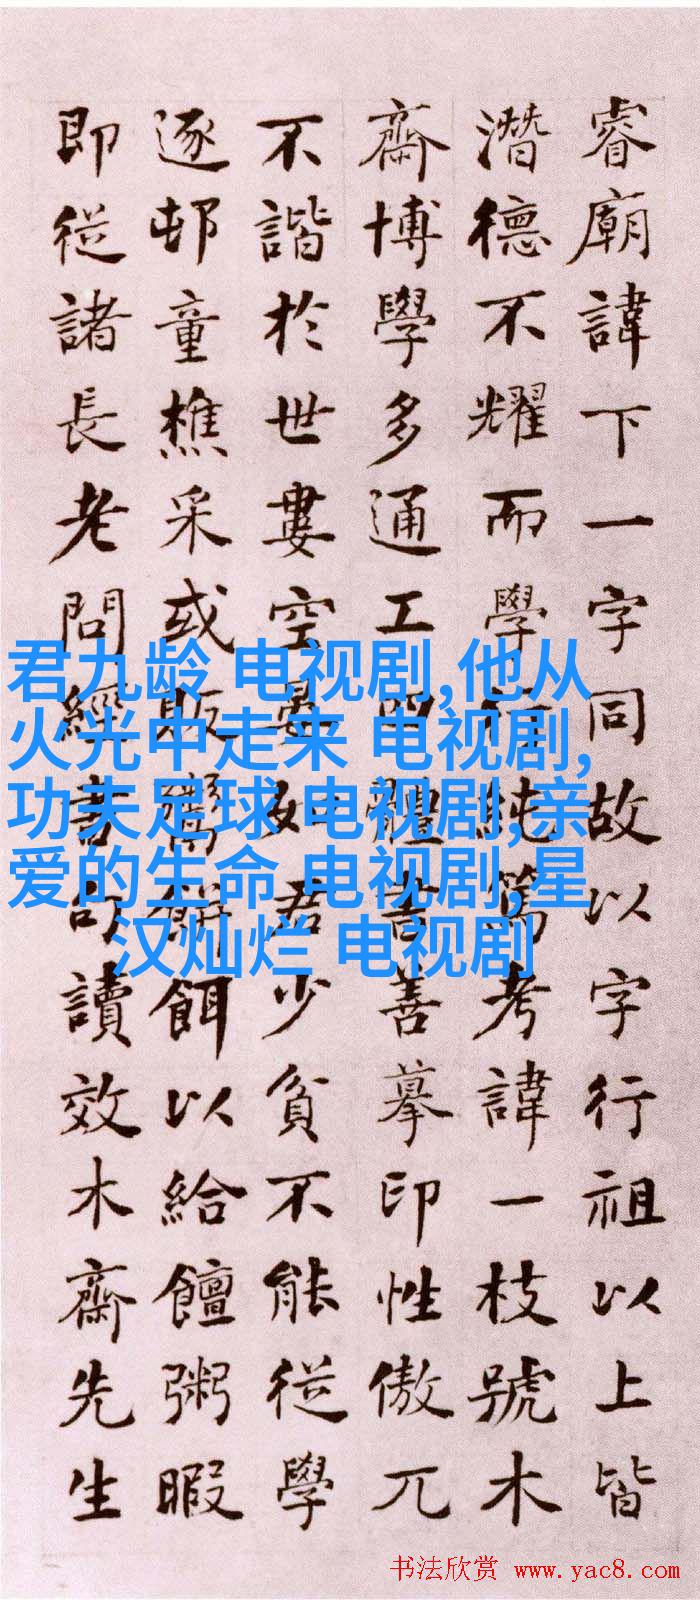 睿廟諱下一字同故以字行祖以上皆
潛德不耀而學行純篤考諱一枝號木
齋博學多通工體書善摹印性傲兀
不諧於世婁空晏如君少貧不能從學
逐邨童樵采或販鬻餅餌以給饘粥暇
即從諸長老問經書句讀效木齋先生
君九龄 电视剧,他从
火光中走来 电视剧,
功夫足球 电视剧,亲
爱的生命 电视剧,星
汉灿烂 电视剧
书法欣赏 www.yac8.com